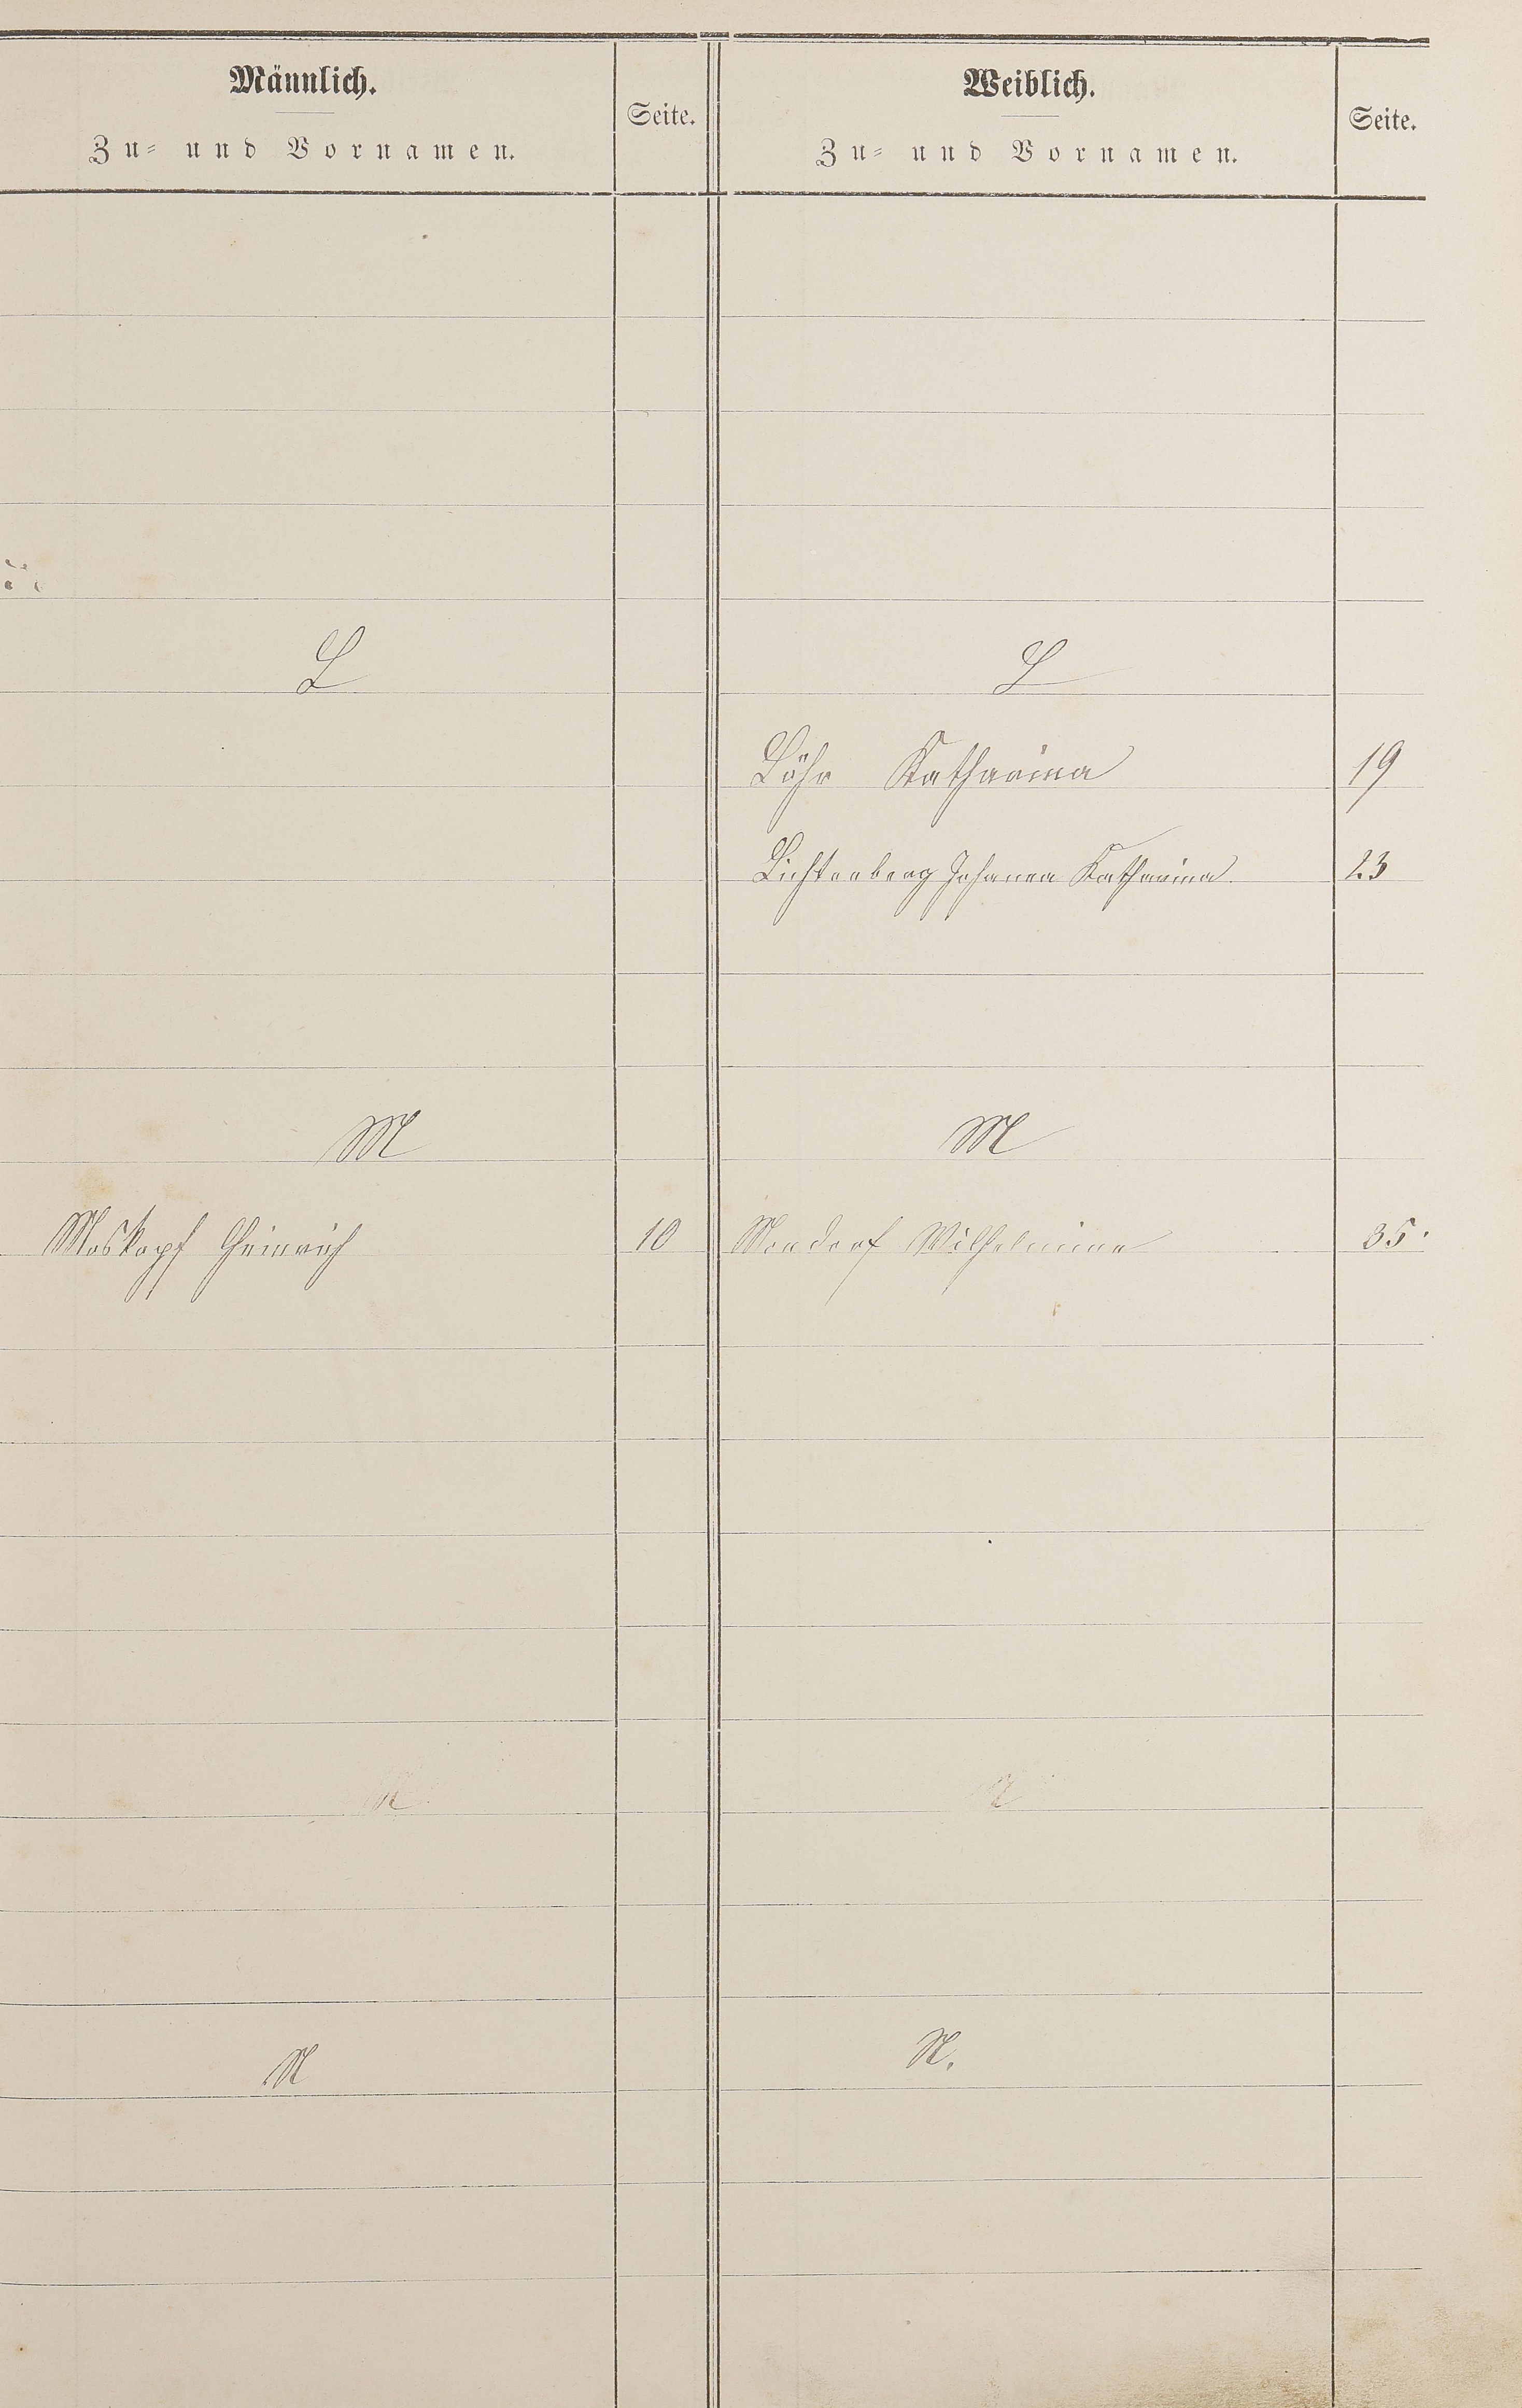 Männlich.
Zu- und Vornamen.
Seite.
Weiblich.
Zu- und Vornamen.
Seite.
L
L
Löhr Katharina 19
Lichtenberg Johanna Katharina 23
M
M
Moskopf Heinrich 10
Mondorf Wilhelmine 35.
N
N
N
N.